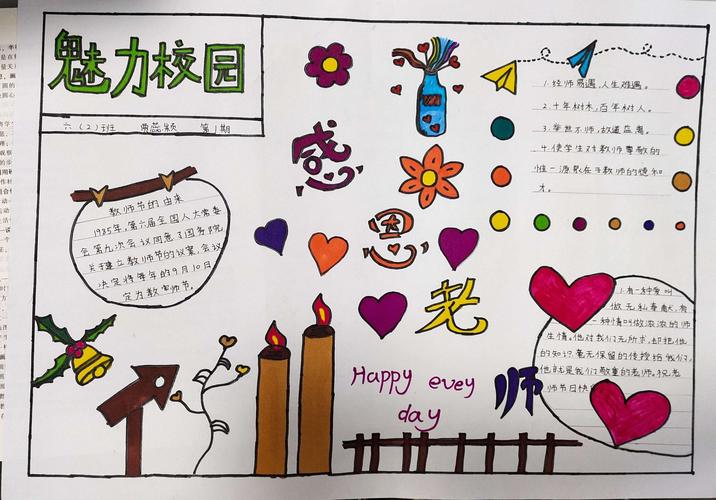 魅力校园
六（2）班 第1期
教师节的由来
1985年,第六届全国人大常委
会第九次会议同意了国务院
关于建立教师节的议案,会议
决定将每年的9月10日
定为教师节。
感
恩
老
师
Happy evey
day
1.经师易遇,人生难遇。
2.十年树木,百年树人。
3.举世不师,故道益离。
4.使学生对教师尊敬的
惟一源泉在于教师的德和
才。
1.有一种爱叫
做无私奉献,有
一种情叫做浓浓的师
生情。他对我们无所求,却把他
的知识毫无保留的传授给我们,
他就是我们敬重的老师。祝老
师节日快